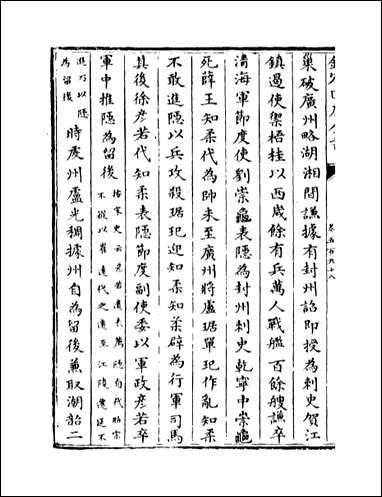 巢破廣州略湖湘間謙據有封州詔即授為刺史賀江
鎮遏使禦梧桂以西歲餘有兵萬人戰艦百餘艘謙卒
清海軍節度使劉崇龜表隱為封州刺史乾寧中崇龜
死薛王知柔代為帥未至廣州將盧琚單玘作亂知柔
不敢進隱以兵攻殺琚玘迎知柔知柔辟為行軍司馬
其後徐彥若代知柔表隱節度副使委以軍政彥若卒
軍中推隱為留後
不從以崔遠代之遠至江陵遷延不
進乃以隱
為留後
時虔州盧光稠據州自為留後兼取潮韶二
卷五百九十八